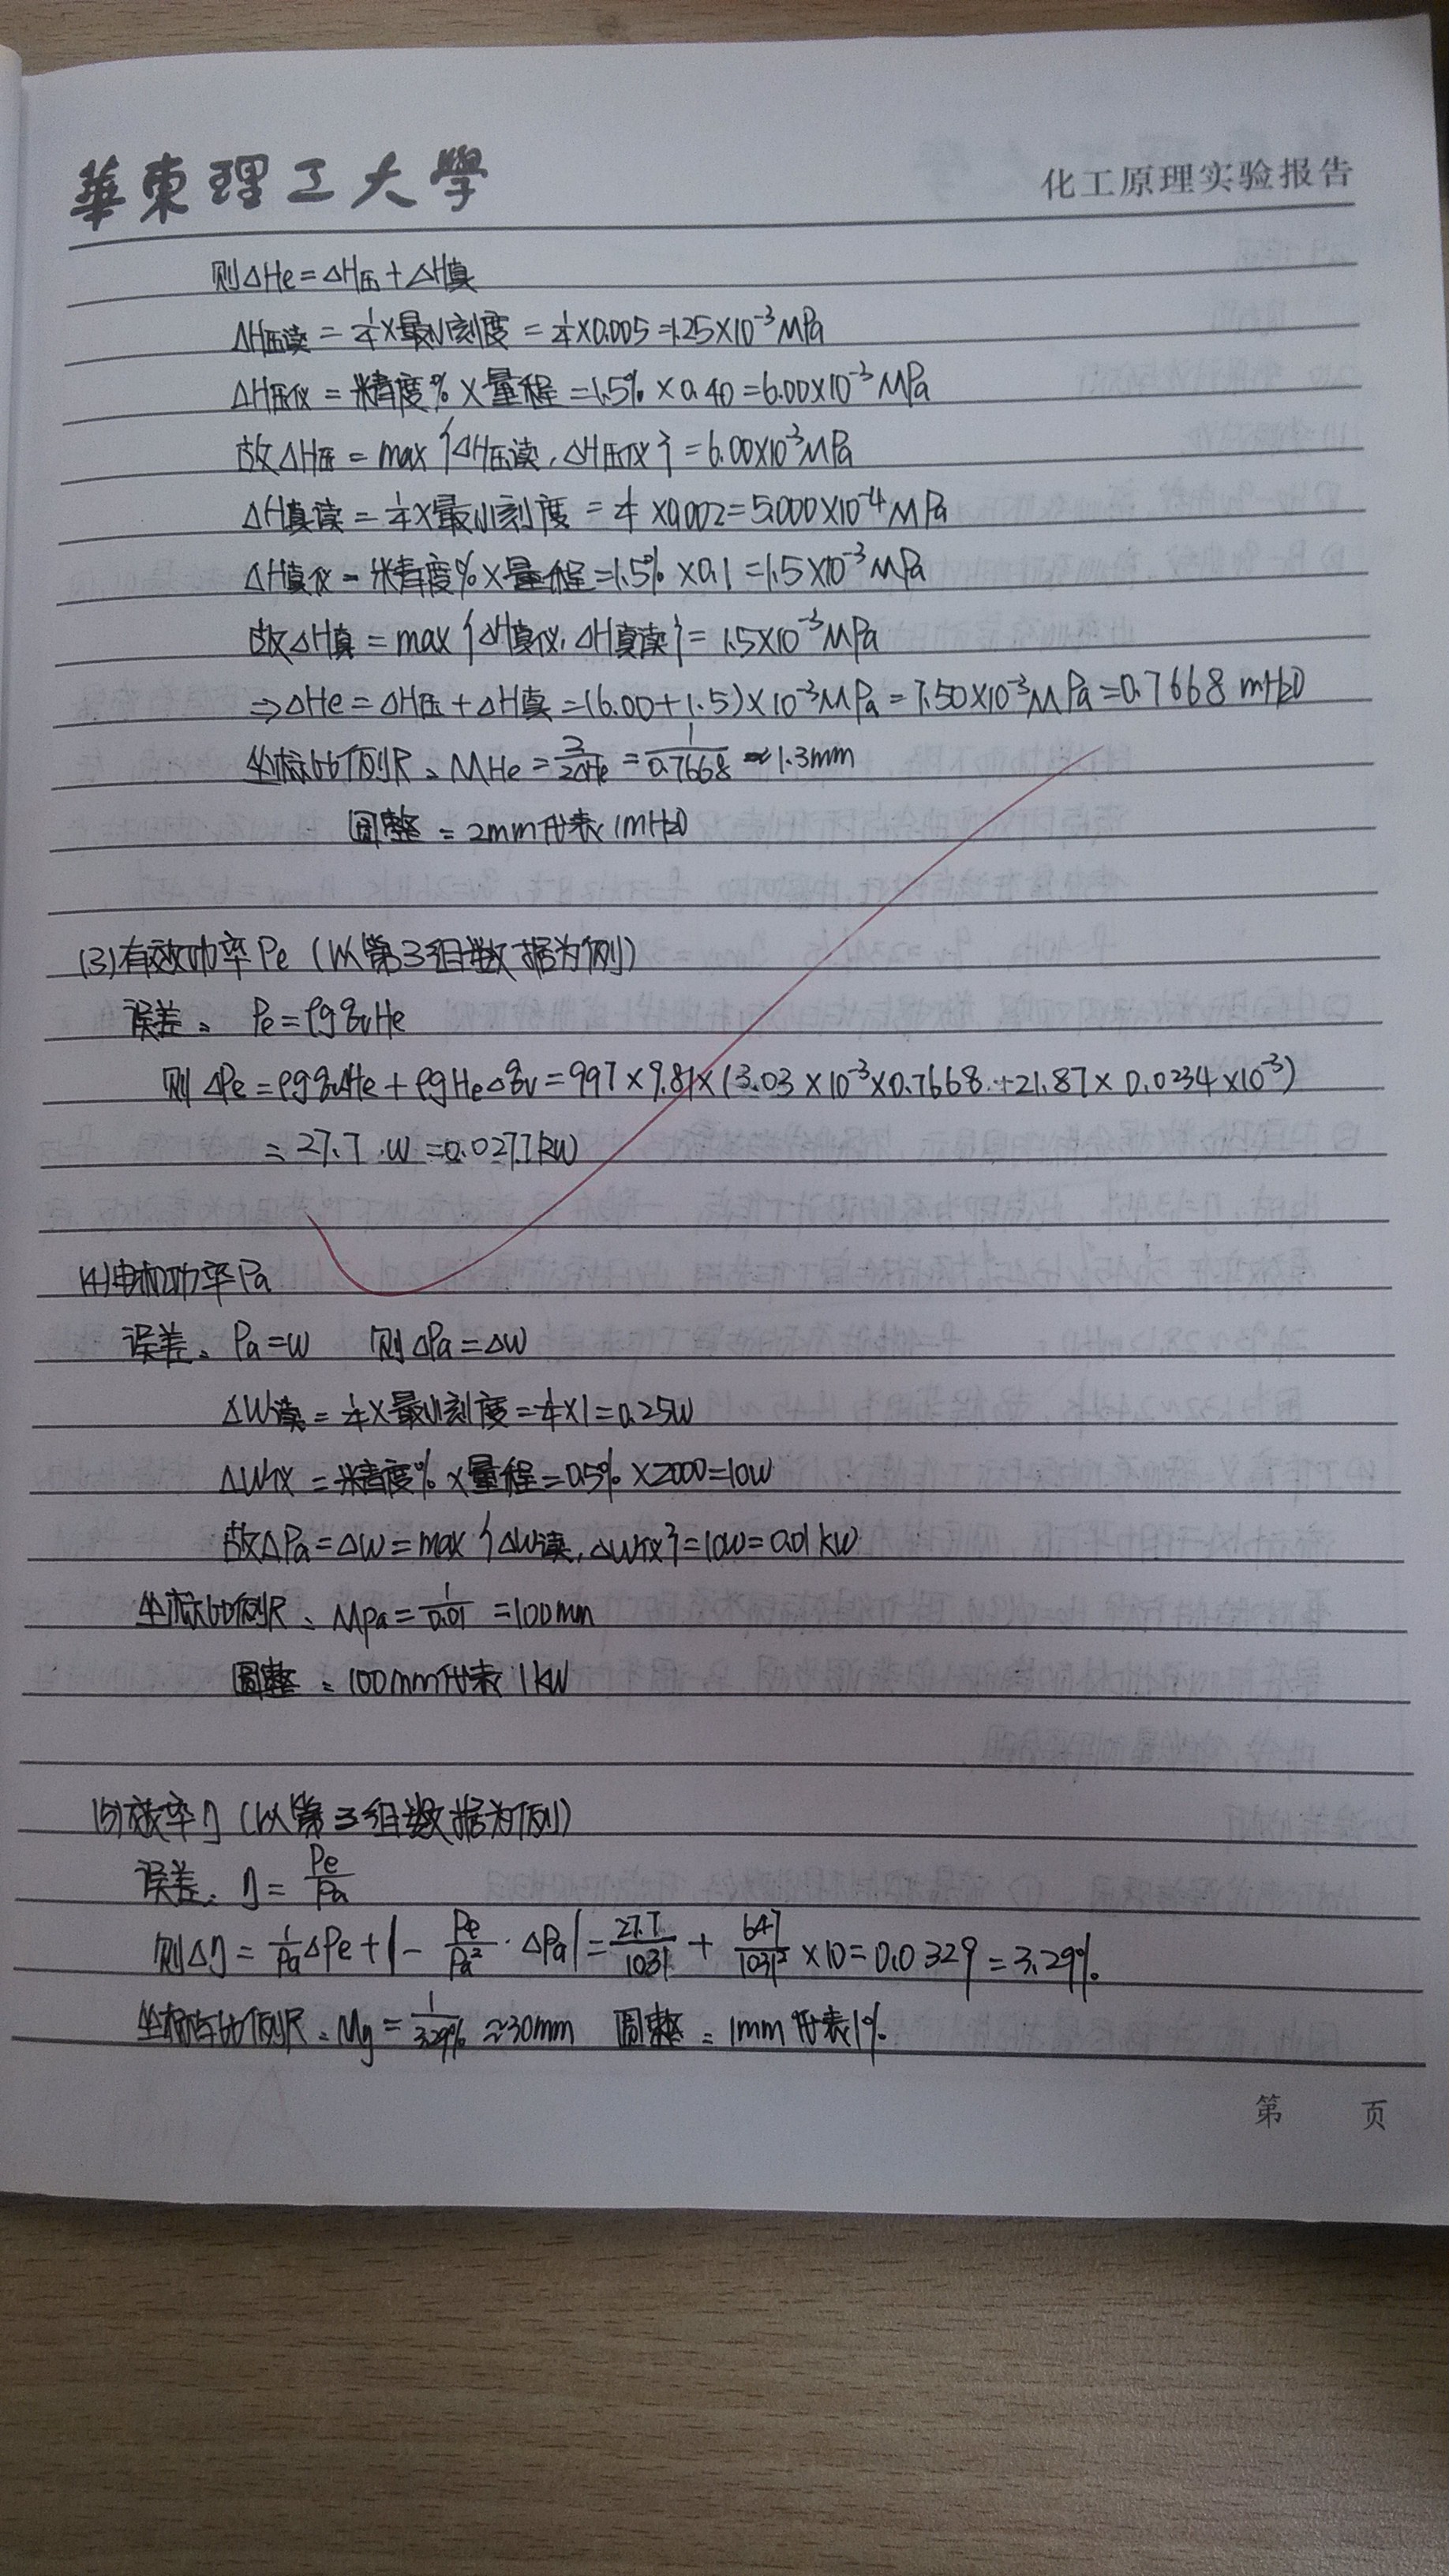 華東理工大學
化工原理实验报告
则△He=△H压+△H真
△H压读=1/4×最小刻度=1/4×0.005=1.25×10⁻³MPa
△H压仪=精度%×量程=1.5%×0.40=6.00×10⁻³MPa
故△H压=max{△H压读,△H压仪}=6.00×10⁻³MPa
△H真读=1/4×最小刻度=1/4×0.002=5.000×10⁻⁴MPa
△H真仪=精度%×量程=1.5%×0.1=1.5×10⁻³MPa
故△H真=max{△H真仪,△H真读}=1.5×10⁻³MPa
⇒△He=△H压+△H真=(6.00+1.5)×10⁻³MPa=7.50×10⁻³MPa=0.7668mH₂O
坐标比例尺:MHe=2/2△He=1/0.7668≈1.3mm
圆整:2mm代表1mH₂O
(3)有效功率Pe(以第3组数据为例)
误差:Pe=ρgqvHe
则△Pe=ρgqv△He+ρgHe△qv=997×9.81×(3.03×10⁻³×0.7668+21.87×0.0234×10⁻³)
=27.7W=0.0277kW
(4)电机功率Pa
误差:Pa=W 则△Pa=△W
△W读=1/4×最小刻度=1/4×1=0.25W
△W仪=精度%×量程=0.5%×2000=10W
故△Pa=△W=max{△W读,△W仪}=10W=0.01kW
坐标比例尺:MPa=1/0.01=100mm
圆整:100mm代表1kW
(5)效率η(以第3组数据为例)
误差:η=Pe/Pa
则△η=1/Pa△Pe+|-Pe/Pa²·△Pa|=27.7/1031+647/1031²×10=0.0329=3.29%
坐标比例尺:Mη=1/3.29%≈30mm 圆整:1mm代表1%
第 页